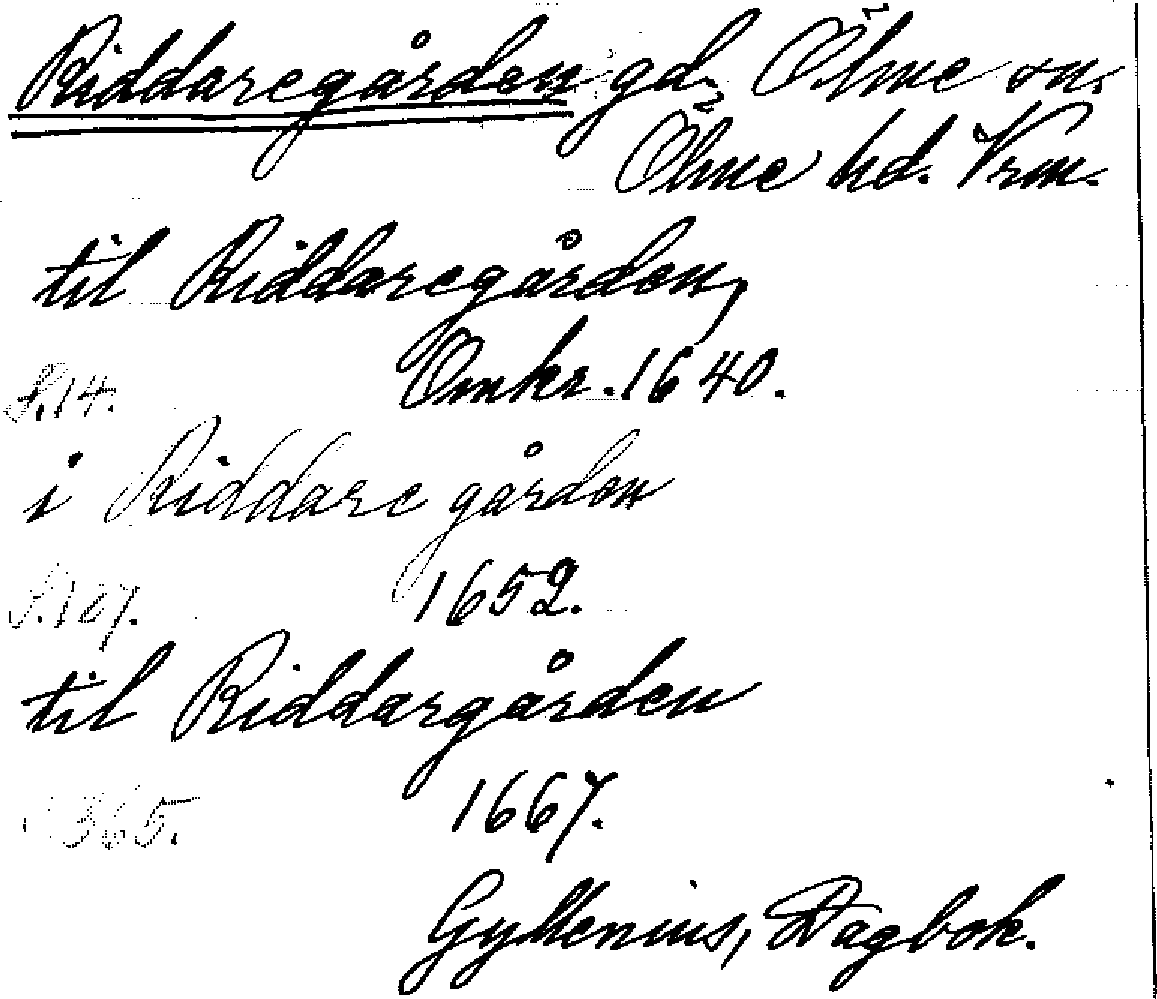 Riddaregården gd, Ölme sn.
Ölme hd. Vrm.
til Riddaregården,
S.14. Omkr. 1640.
i Riddare gården
S.107. 1652.
til Riddargården
S. 365. 1667.
Gyllenius, Dagbok.